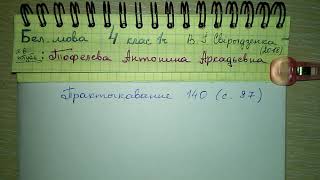 Бел. мова 4 клас 1ч В. І. Свірыдзенка
(2018)
Тофелева Антонина Аркадьевна
Практыкаванне 140 (с. 87)